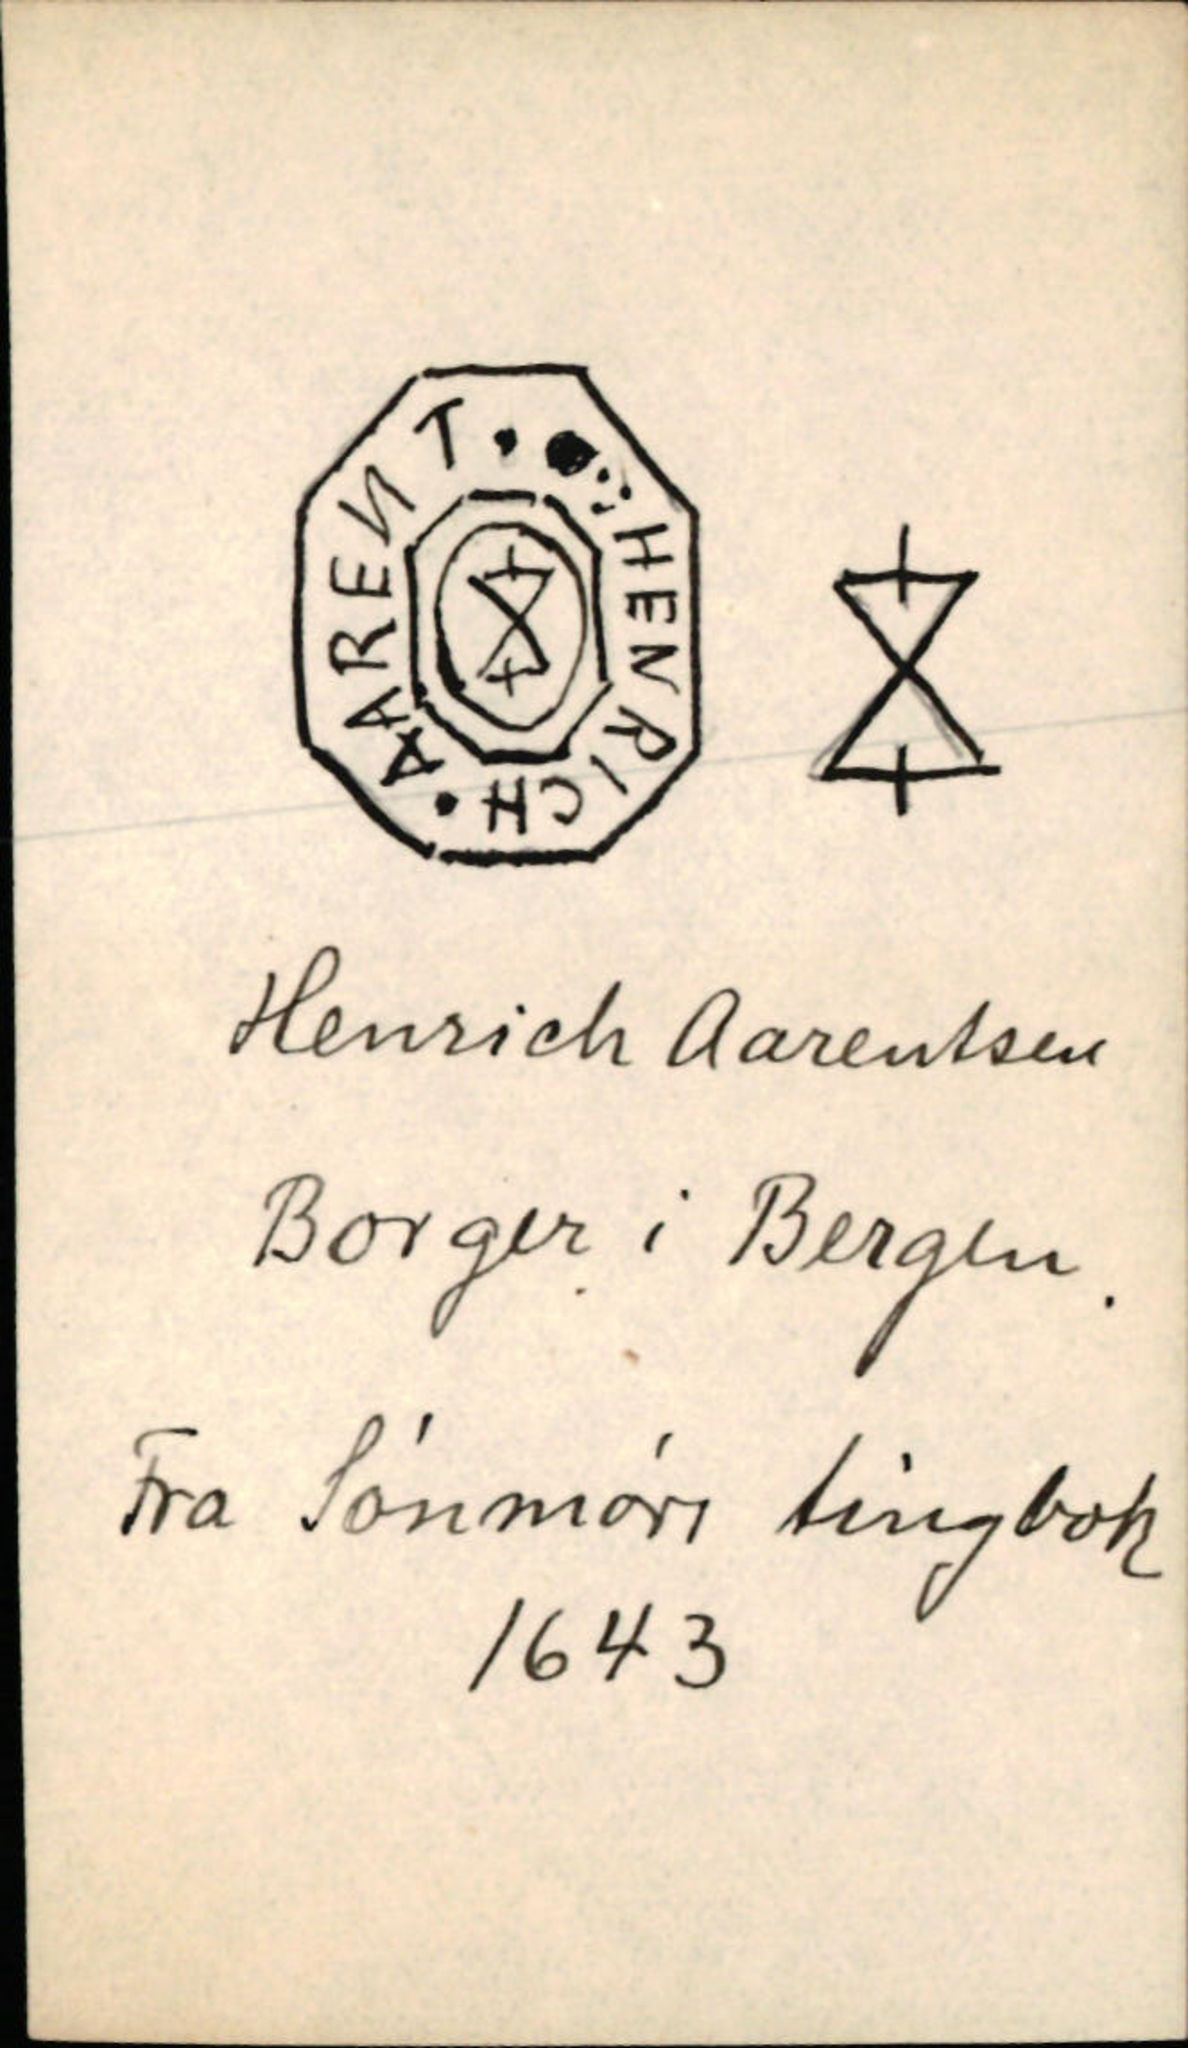 HENRICH • AARENT •
Henrich Aarentsen
Borger i Bergen.
Fra Sónmórs tingbok
1643